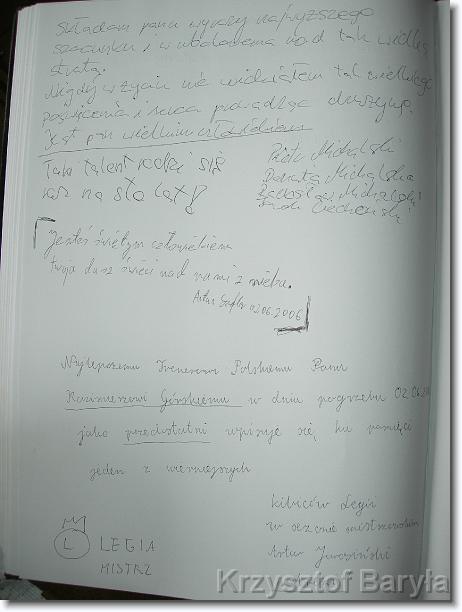 Składam panu wyrazy najwyższego
szacunku i uwodamenia nad tak wielką
stratą.
Nigdy w życiu nie widziałem tak wielkiego
poświęcenia i serca prowadząc drużynę.
Jest pan wielkim człowiekiem
Taki talent rodzi się
raz na sto lat!
Piotr Michalski
Danuta Michalska
Radosław Michalski
Jesteś świętym człowiekiem
twoja dusz świeci nad nami z nieba.
Artur 02.06.2006
Najlepszemu Trenerowi Polskiemu Panu
Kazimierzowi Górskiemu w dniu pogrzebu 02.06.
jako przedostatni wpisuje się ku pamięci
jeden z wierniejszych
kibiców Legii
w sezonie mistrzowskim
Artur
L LEGIA
MISTRZ
Krzysztof Baryła